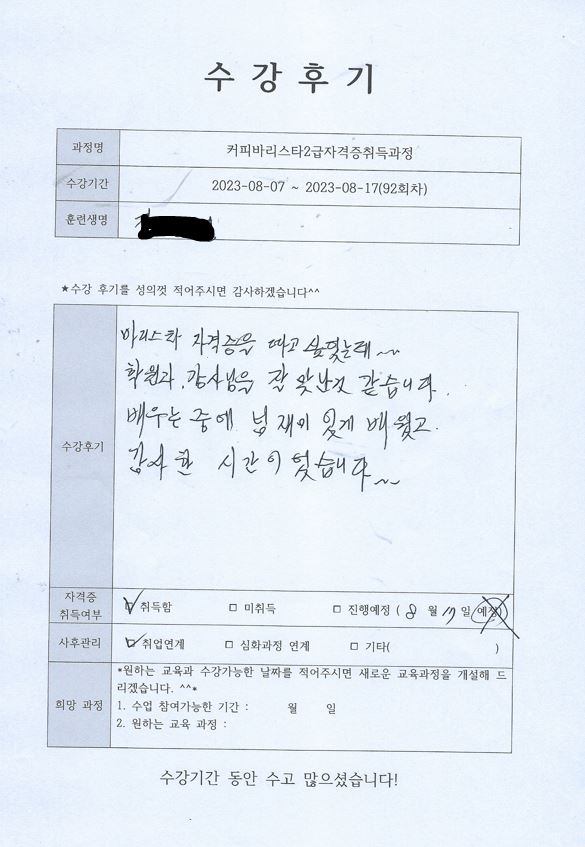 수 강 후 기
과정명 커피바리스타2급자격증취득과정
수강기간 2023-08-07 ~ 2023-08-17(92회차)
훈련생명
★수강 후기를 성의껏 적어주시면 감사하겠습니다^^
수강후기
바리스타 자격증을 따고 싶었는데~~
학원과, 강사님을 잘 만난것 같습니다.
배우는 중에 넘 재미 있게 배웠고
감사한 시간이 었습니다~~
자격증 취득여부 ☑ 취득함 □ 미취득 □ 진행예정 ( 8 월 17 일 예정)
사후관리 ☑ 취업연계 □ 심화과정 연계 □ 기타( )
희망 과정
*원하는 교육과 수강가능한 날짜를 적어주시면 새로운 교육과정을 개설해 드
리겠습니다. ^^*
1. 수업 참여가능한 기간 : 월 일
2. 원하는 교육 과정 :
수강기간 동안 수고 많으셨습니다!